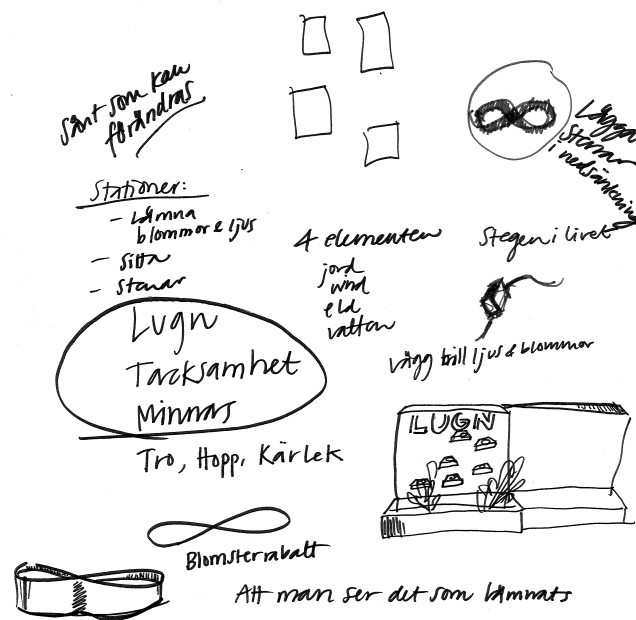 Sånt som kan
förändras
Lägga
stenar
i nedsänkning
Stationer:
- Lämna
blommor & ljus
- Sitta
- Stenar
4 elementen
jord
vind
eld
vatten
Stegen i livet
Lugn
Tacksamhet
Minnas
Tro, Hopp, Kärlek
vägg till ljus & blommor
LUGN
Blomsterrabatt
Att man ser det som lämnats